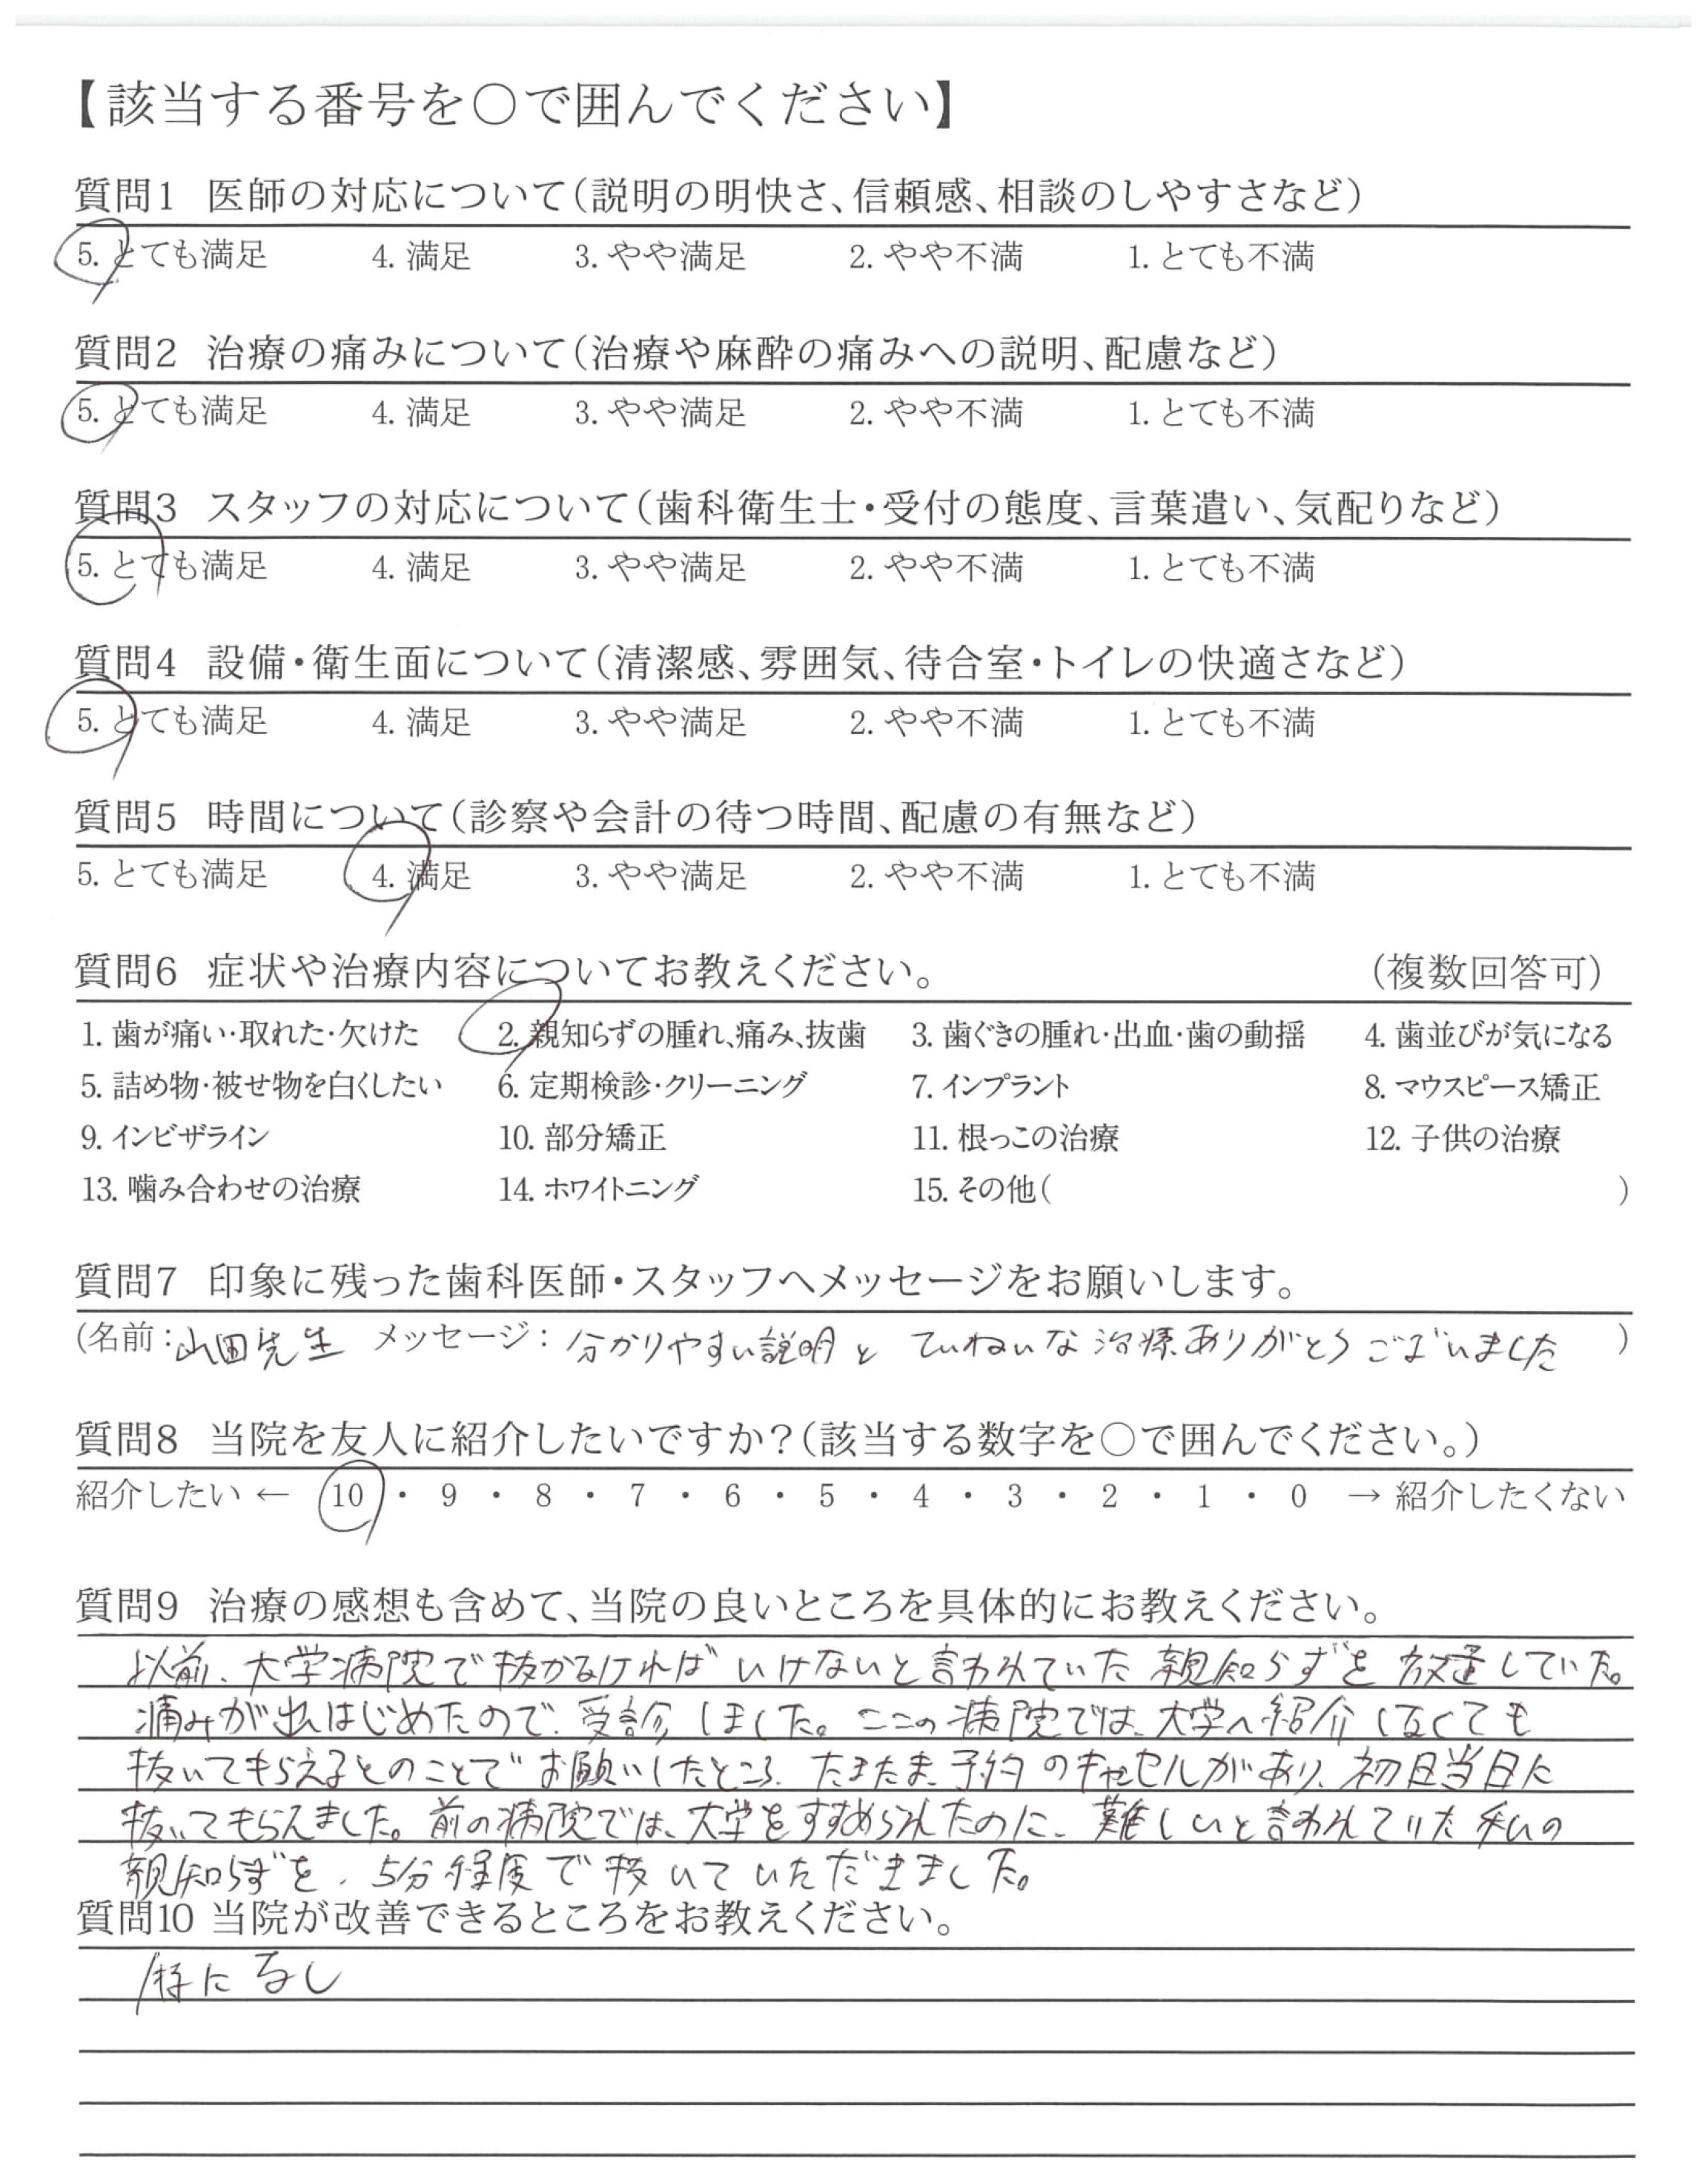 【該当する番号を○で囲んでください】
質問1 医師の対応について(説明の明快さ、信頼感、相談のしやすさなど)
5. とても満足 4. 満足 3. やや満足 2. やや不満 1. とても不満
質問2 治療の痛みについて(治療や麻酔の痛みへの説明、配慮など)
5. とても満足 4. 満足 3. やや満足 2. やや不満 1. とても不満
質問3 スタッフの対応について(歯科衛生士・受付の態度、言葉遣い、気配りなど)
5. とても満足 4. 満足 3. やや満足 2. やや不満 1. とても不満
質問4 設備・衛生面について(清潔感、雰囲気、待合室・トイレの快適さなど)
5. とても満足 4. 満足 3. やや満足 2. やや不満 1. とても不満
質問5 時間について(診察や会計の待つ時間、配慮の有無など)
5. とても満足 4. 満足 3. やや満足 2. やや不満 1. とても不満
質問6 症状や治療内容についてお教えください。 (複数回答可)
1. 歯が痛い・取れた・欠けた 2. 親知らずの腫れ、痛み、抜歯 3. 歯ぐきの腫れ・出血・歯の動揺 4. 歯並びが気になる
5. 詰め物・被せ物を白くしたい 6. 定期検診・クリーニング 7. インプラント 8. マウスピース矯正
9. インビザライン 10. 部分矯正 11. 根っこの治療 12. 子供の治療
13. 噛み合わせの治療 14. ホワイトニング 15. その他( )
質問7 印象に残った歯科医師・スタッフへメッセージをお願いします。
(名前:山田先生 メッセージ: 分かりやすい説明と ていねいな治療ありがとうございました )
質問8 当院を友人に紹介したいですか?(該当する数字を○で囲んでください。)
紹介したい ← 10 ・ 9 ・ 8 ・ 7 ・ 6 ・ 5 ・ 4 ・ 3 ・ 2 ・ 1 ・ 0 → 紹介したくない
質問9 治療の感想も含めて、当院の良いところを具体的にお教えください。
以前、大学病院で抜かなければいけないと言われていた親知らずを放置していた。
痛みが出はじめたので、受診しました。ここの病院では、大学へ紹介しなくても
抜いてもらえるとのことでお願いしたところ、たまたま予約のキャンセルがあり、初日当日に
抜いてもらえました。前の病院では、大学をすすめられたのに、難しいと言われていた私の
親知らずを、5分程度で抜いていただきました。
質問10 当院が改善できるところをお教えください。
特になし